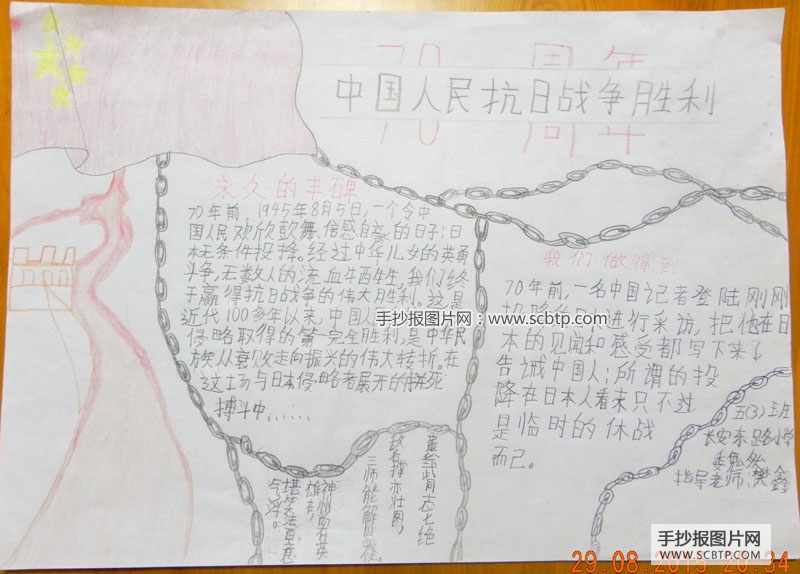 70 周年
中国人民抗日战争胜利
永久的丰碑
70年前,1945年8月5日,一个令中
国人民欢欣鼓舞倍感自豪的日子:日
本无条件投降。经过中华儿女的英勇
斗争,无数人的流血牺牲,我们终
于赢得抗日战争的伟大胜利。这是
近代100多年以来,中国人
侵略取得的第一完全胜利,是中华民
族从衰败走向振兴的伟大转折。在
这场与日本侵略者展开的拼死
搏斗中......
我们做得到
70年前,一名中国记者登陆刚刚
进行采访,把他在日
本的见闻和感受都写下来了
告诫中国人:所谓的投
降在日本人看来只不过
是临时的休战
而已。
五(3)班
长安东路小学
指导老师:樊鑫
手抄报图片网:www.scbtp.com
手抄报图片网
WWW.SCBTP.COM
29.08.2015 20:34